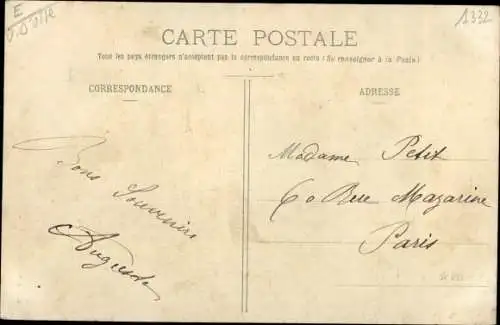 E
1332
CARTE POSTALE
Tous les pays étrangers n'acceptent pas la correspondance au recto (Se renseigner à la Poste)
CORRESPONDANCE
ADRESSE
Bons Souvenirs
Auguste
Madame Petit
60 Rue Mazarine
Paris